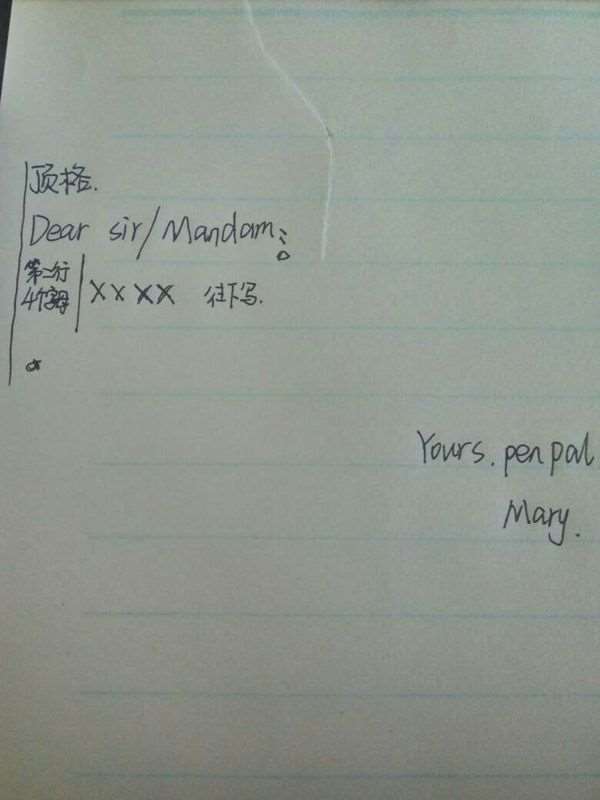 顶格.
Dear sir/Mandam:
第二行
4个字母 XXXX 往下写.
Yours. penpal
Mary.